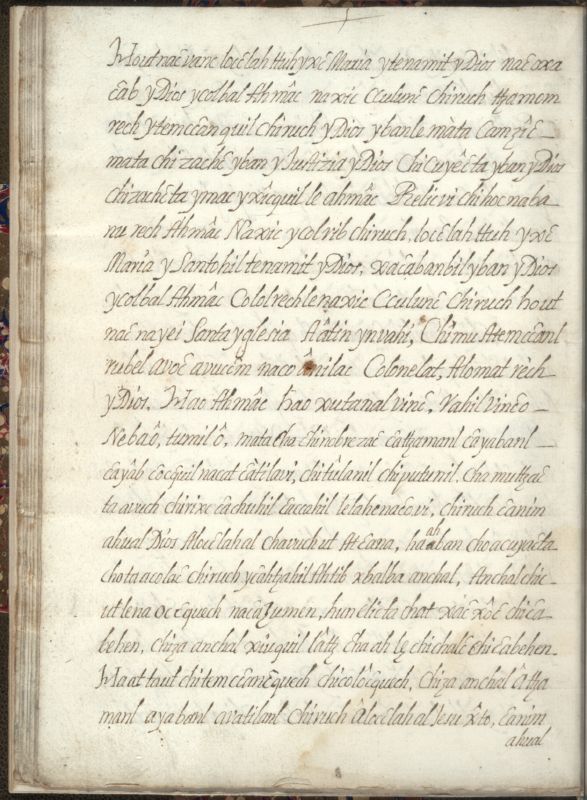 Ma ut nac vanc locɛlah Ttuh yxɛ Maria ytenamit y Dios nac oxa
ɛab y Dios ycolbal Ahmâc naxic Cculunɛ chiruch tzamom
rech ytemccanquil chiruch y Dios ybanle mata Camziɛ
mata chizachɛ yban y Justizia y Dios chi Cuyɛta yban y Dios
chizachɛta ymac yxicquil le ahmâc Relic vi chihoc naba
nu rech Ahmâc Naxic ycolrib chiruch, locɛlah Ttuh yxɛ
Maria y Santohil tenamit y Dios, xacabanbil yban y Dios
ycolbal Ahmâc Cololrech lenaxic Cculunɛ chiruch ho ut
nac nayei Santa yglesia Aâtin ynvahi, Chimu Atemccanl
rubel avoc avucɛm naco ânilac Colonelat, Alomat rèch
y Dios. Mao Ahmâc hao xutanal vinɛ, Nahil vinɛo
Nebaô, tumilô, mata cha chinobrezac catzamanl cayabanl
cayâb cocquil nacat câtilavi, chitûlanil chiputunil. cha mutzac
ta avuch chirixc cachuhil caccahil lelahenaco vi, chiruch canim
ahual Dios Alocɛlahal chavuch ut At cana, ha ah aban choacuyacta
chota acolac chiruch ycahtzahil Ahtib xbalba anchal, Anchal chic
ut lena ocɛquech nacazumen, hun êlicta chat xac xôc chi ca
behen, chiza anchal xiuquil lâtz cha ah le chichalc chi cabehen.
Ma at taut chitemccanɛquech chicolôcquech, chiza anchal âtza
manl ayabanl avatilanl chiruch Alocɛlahal Jesu xto, canim
ahual